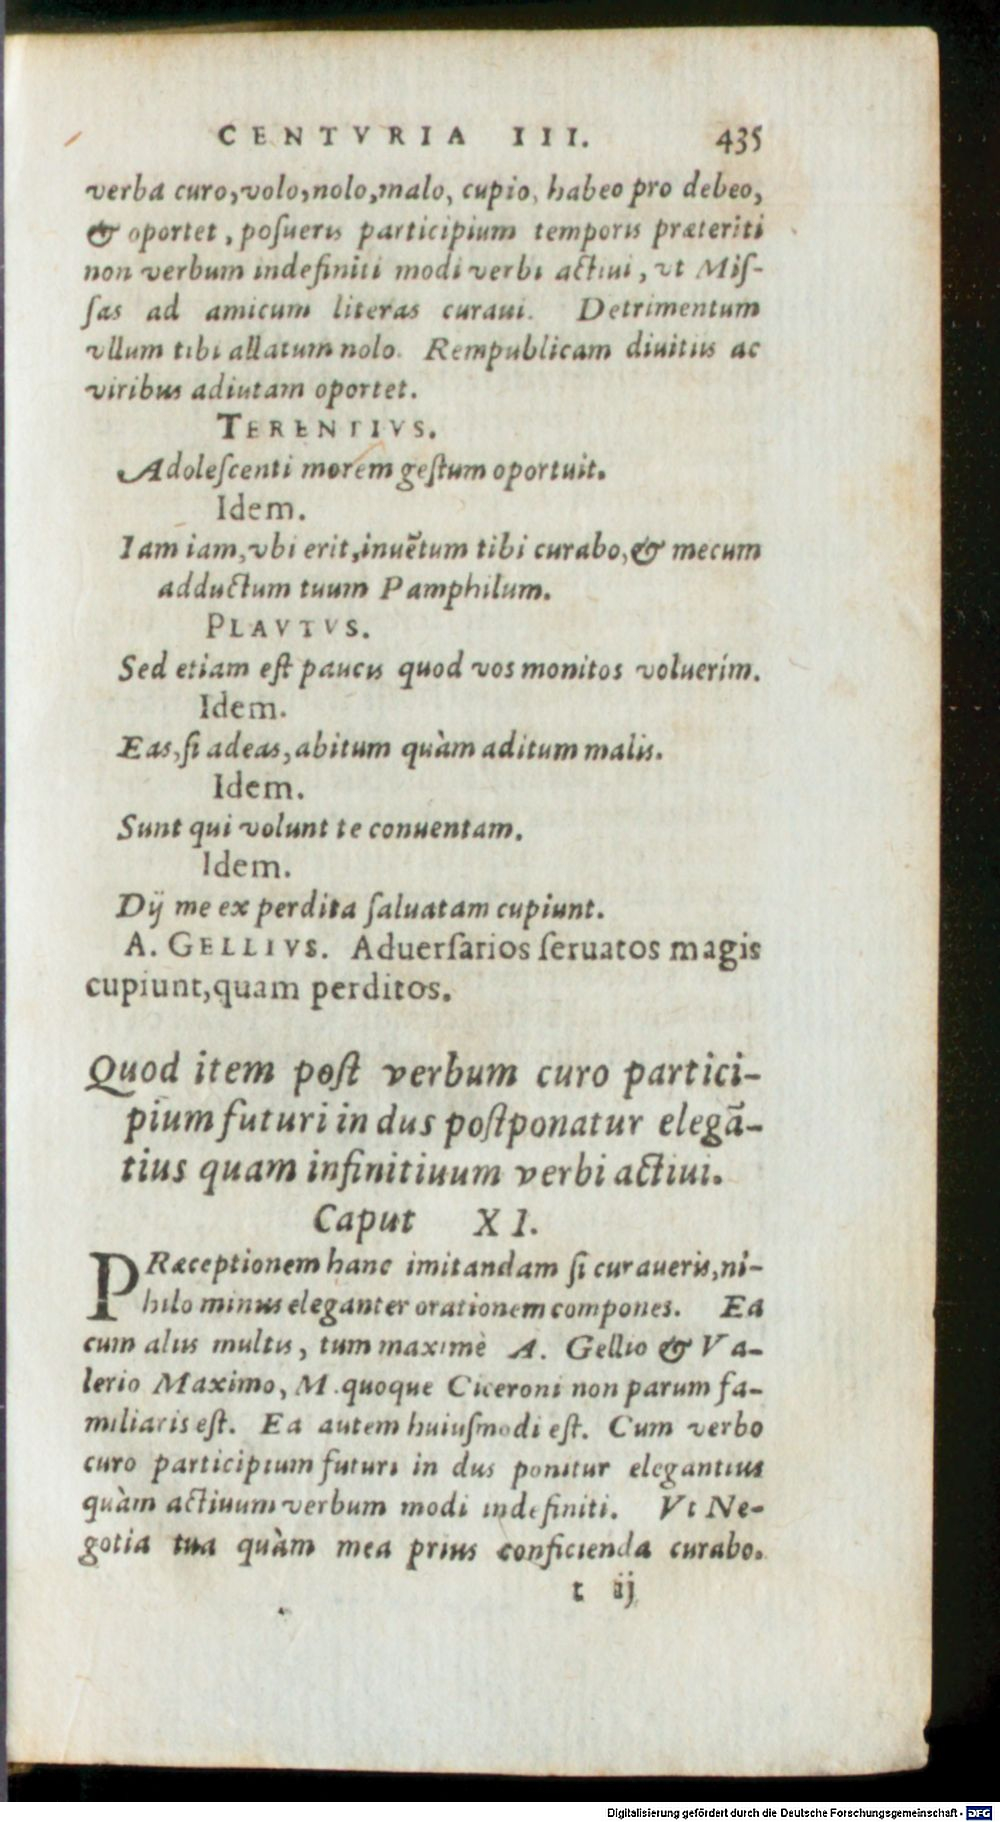 CENTVRIA III. 435
verba curo, volo, nolo, malo, cupio, habeo pro debeo,
& oportet, posueris participium temporis præteriti
non verbum indefiniti modi verbi actiui, vt Mis-
sas ad amicum literas curaui. Detrimentum
vllum tibi allatum nolo. Rempublicam diuitiis ac
viribus adiutam oportet.
TERENTIVS.
Adolescenti morem gestum oportuit.
Idem.
Iam iam, vbi erit, inuẽtum tibi curabo, & mecum
adductum tuum Pamphilum.
PLAVTVS.
Sed etiam est paucis quod vos monitos voluerim.
Idem.
Eas, si adeas, abitum quàm aditum malis.
Idem.
Sunt qui volunt te conuentam.
Idem.
Dij me ex perdita saluatam cupiunt.
A. GELLIVS. Aduersarios seruatos magis
cupiunt, quam perditos.
Quod item post verbum curo partici-
pium futuri in dus postponatur elegã-
tius quam infinitiuum verbi actiui.
Caput XI.
PRæceptionem hanc imitandam si curaueris, ni-
hilo minus eleganter orationem compones. Ea
cum aliis multis, tum maximè A. Gellio & Va-
lerio Maximo, M. quoque Ciceroni non parum fa-
miliaris est. Ea autem huiusmodi est. Cum verbo
curo participium futuri in dus ponitur elegantius
quàm actiuum verbum modi indefiniti. Vt Ne-
gotia tua quàm mea prius conficienda curabo.
t ij
Digitalisierung gefördert durch die Deutsche Forschungsgemeinschaft - DFG